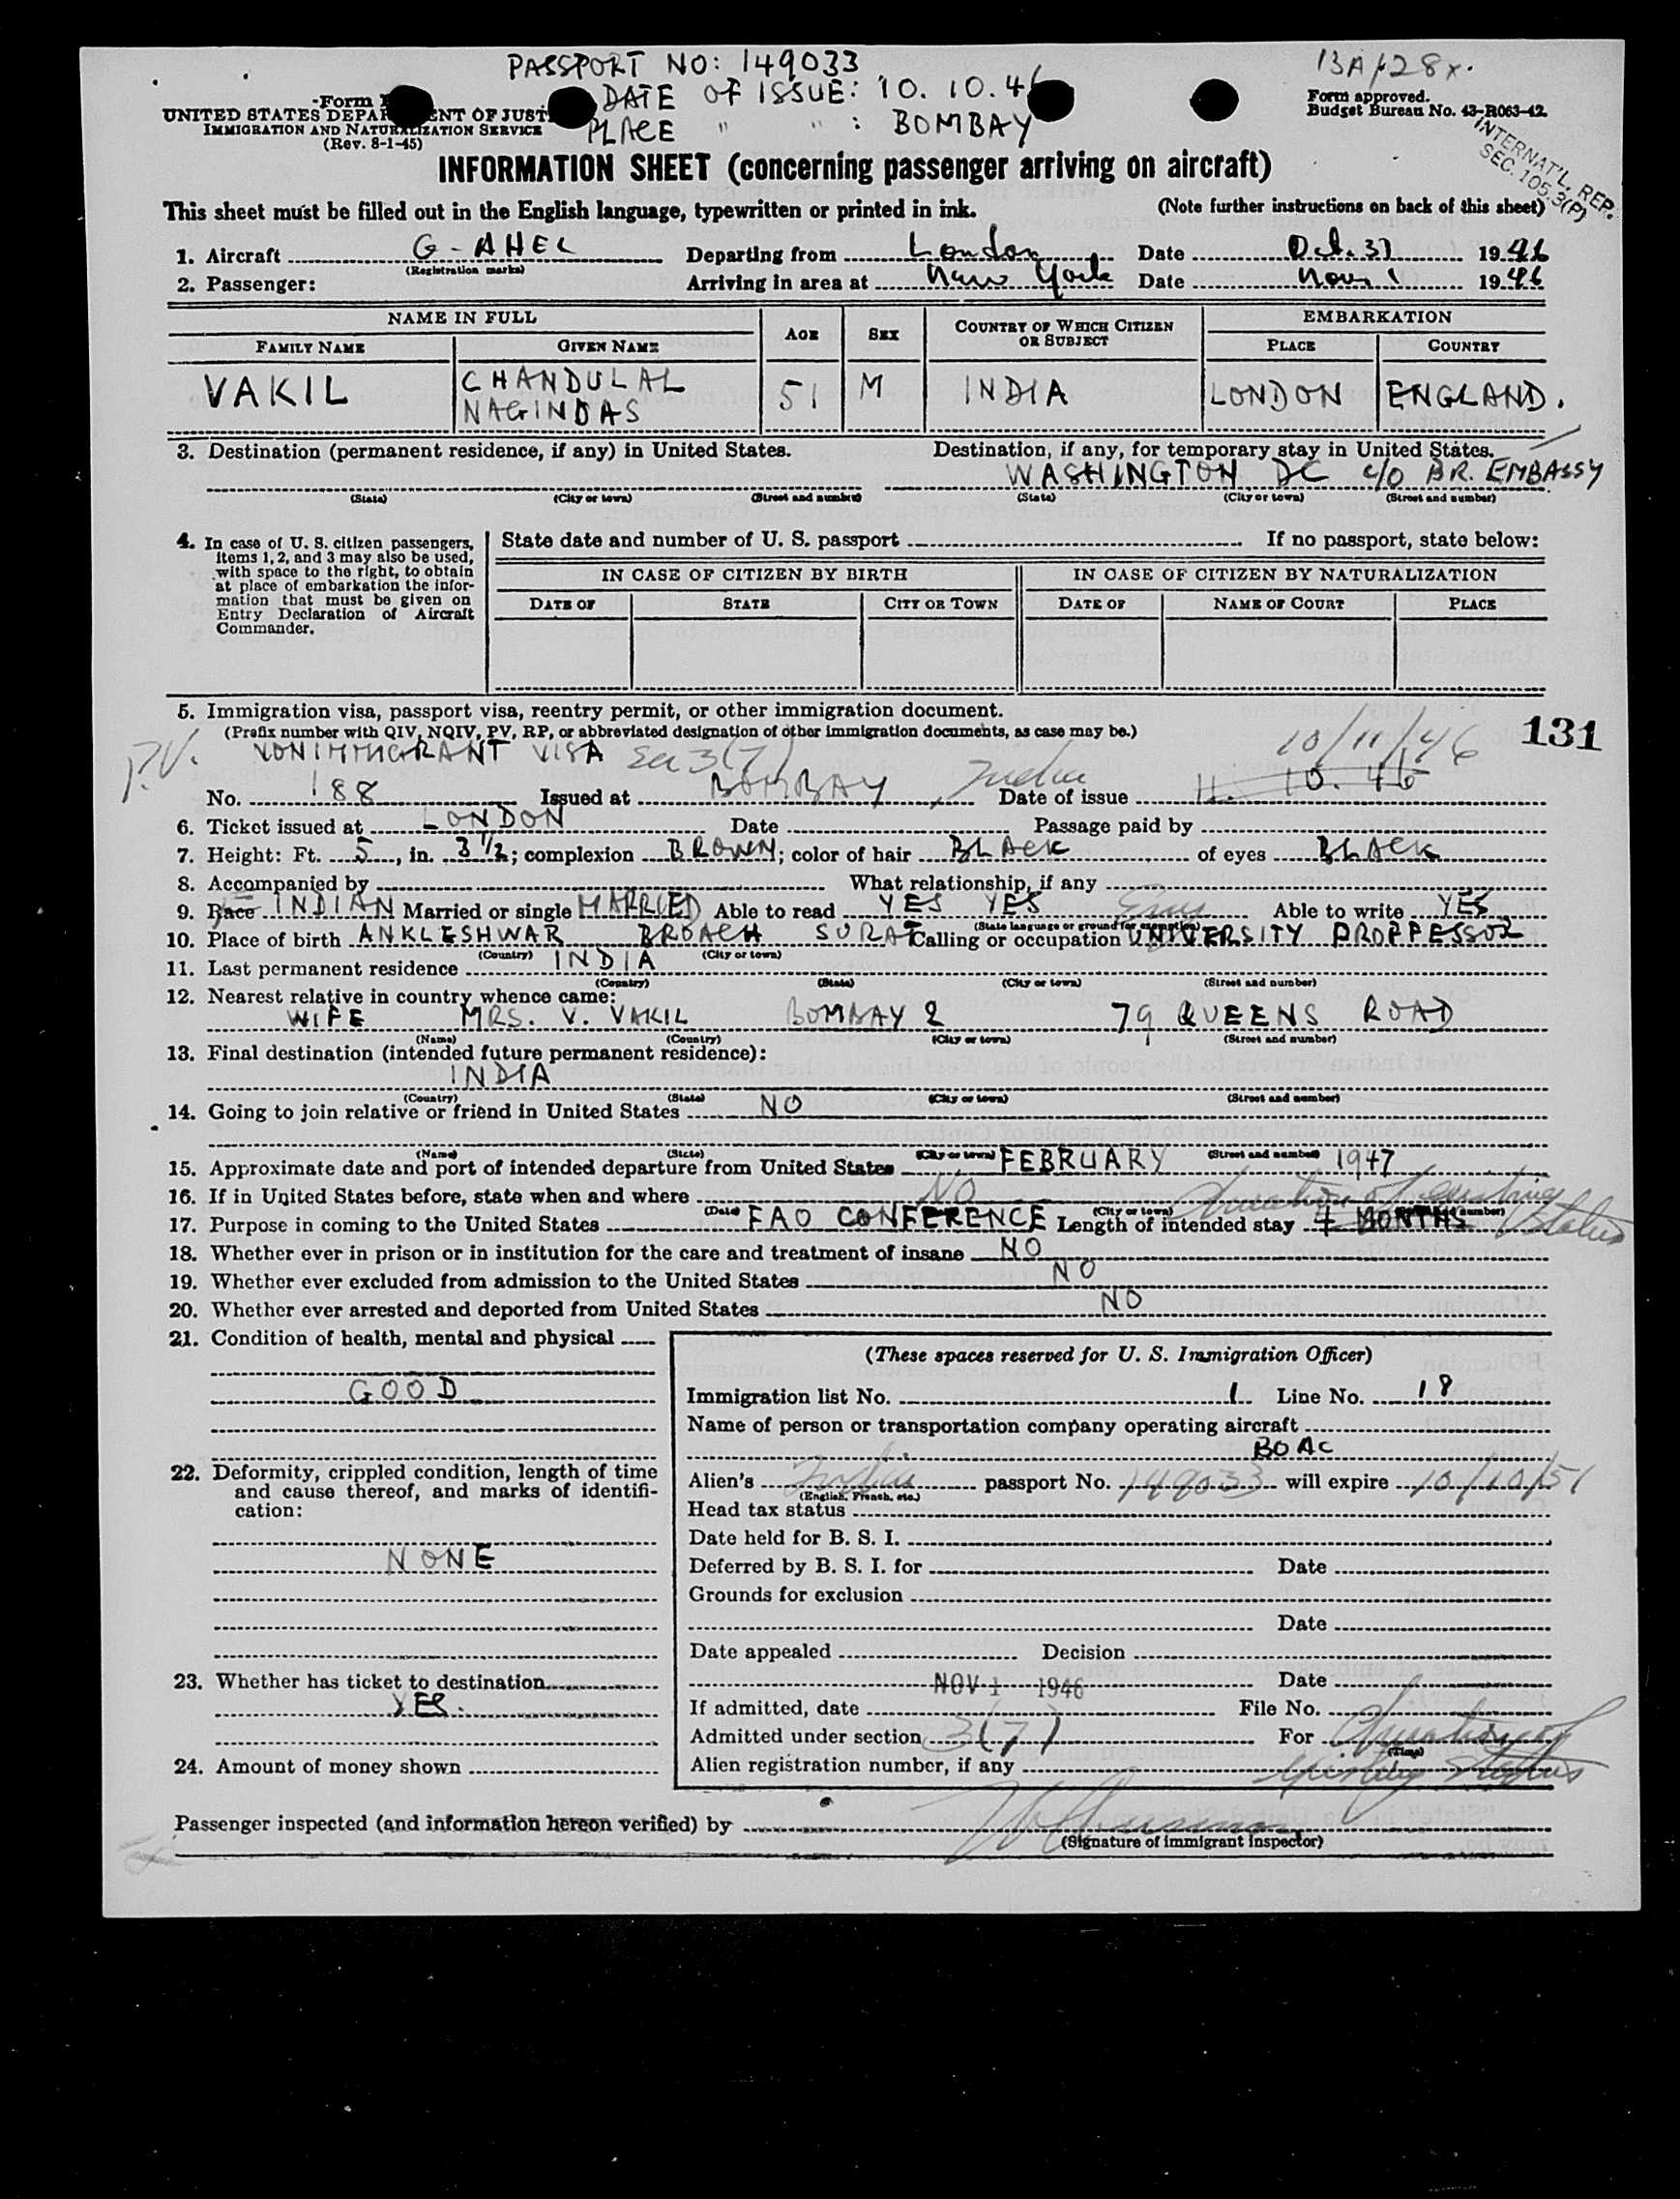 PASSPORT NO: 149033
13A/28x.
DATE OF ISSUE: 10. 10. 46
PLACE " " : BOMBAY
Form
UNITED STATES DEPARTMENT OF JUST
IMMIGRATION AND NATURALIZATION SERVICE
(Rev. 8-1-45)
Form approved.
Budget Bureau No. 43-R063-42.
INTERNAT'L. REP.
SEC. 105.3(P)
INFORMATION SHEET (concerning passenger arriving on aircraft)
This sheet must be filled out in the English language, typewritten or printed in ink. (Note further instructions on back of this sheet)
1. Aircraft G-AHEL Departing from London Date Oct. 31 1946
(Registration marks)
2. Passenger: Arriving in area at New York Date Nov 1 1946
NAME IN FULL AGE SEX COUNTRY OF WHICH CITIZEN OR SUBJECT EMBARKATION
FAMILY NAME GIVEN NAME PLACE COUNTRY
VAKIL CHANDULAL NAGINDAS 51 M INDIA LONDON ENGLAND.
3. Destination (permanent residence, if any) in United States. Destination, if any, for temporary stay in United States.
WASHINGTON DC c/o BR. EMBASSY
(State) (City or town) (Street and number) (State) (City or town) (Street and number)
4. In case of U. S. citizen passengers, items 1, 2, and 3 may also be used, with space to the right, to obtain at place of embarkation the information that must be given on Entry Declaration of Aircraft Commander.
State date and number of U. S. passport If no passport, state below:
IN CASE OF CITIZEN BY BIRTH IN CASE OF CITIZEN BY NATURALIZATION
DATE OF STATE CITY OR TOWN DATE OF NAME OF COURT PLACE
5. Immigration visa, passport visa, reentry permit, or other immigration document.
(Prefix number with QIV, NQIV, PV, RP, or abbreviated designation of other immigration documents, as case may be.)
131
P.V. NONIMMIGRANT VISA Sec 3(7) 10/11/46
No. 188 Issued at BOMBAY, India Date of issue 11. 10. 46
6. Ticket issued at LONDON Date Passage paid by
7. Height: Ft. 5, in. 3 1/2; complexion BROWN; color of hair BLACK of eyes BLACK
8. Accompanied by What relationship, if any
9. Race INDIAN Married or single MARRIED Able to read YES YES Eng Able to write YES
(State language or ground for exemption)
10. Place of birth ANKLESHWAR BROACH SURAT Calling or occupation UNIVERSITY PROFFESSOR
(Country) (City or town)
11. Last permanent residence INDIA
(Country) (State) (City or town) (Street and number)
12. Nearest relative in country whence came:
WIFE MRS. V. VAKIL BOMBAY 2 79 QUEENS ROAD
(Name) (Country) (City or town) (Street and number)
13. Final destination (intended future permanent residence):
INDIA
(Country) (State) (City or town) (Street and number)
14. Going to join relative or friend in United States NO
(Name) (State) (City or town) (Street and number)
15. Approximate date and port of intended departure from United States FEBRUARY 1947
16. If in United States before, state when and where NO
(Date) (City or town) (Street and number)
duration of existing status
17. Purpose in coming to the United States FAO CONFERENCE Length of intended stay 4 MONTHS
18. Whether ever in prison or in institution for the care and treatment of insane NO
19. Whether ever excluded from admission to the United States NO
20. Whether ever arrested and deported from United States NO
21. Condition of health, mental and physical
GOOD
22. Deformity, crippled condition, length of time and cause thereof, and marks of identification:
NONE
23. Whether has ticket to destination
YES.
24. Amount of money shown
(These spaces reserved for U. S. Immigration Officer)
Immigration list No. 1 Line No. 18
Name of person or transportation company operating aircraft
BOAC
Alien's Indian passport No. 149033 will expire 10/10/51
(English, French, etc.)
Head tax status
Date held for B. S. I.
Deferred by B. S. I. for Date
Grounds for exclusion
Date
Date appealed Decision
NOV 1 1946 Date
If admitted, date File No.
Admitted under section 3(7) For Duration of
(Time)
Alien registration number, if any existing status
Passenger inspected (and information hereon verified) by
(Signature of immigrant inspector)